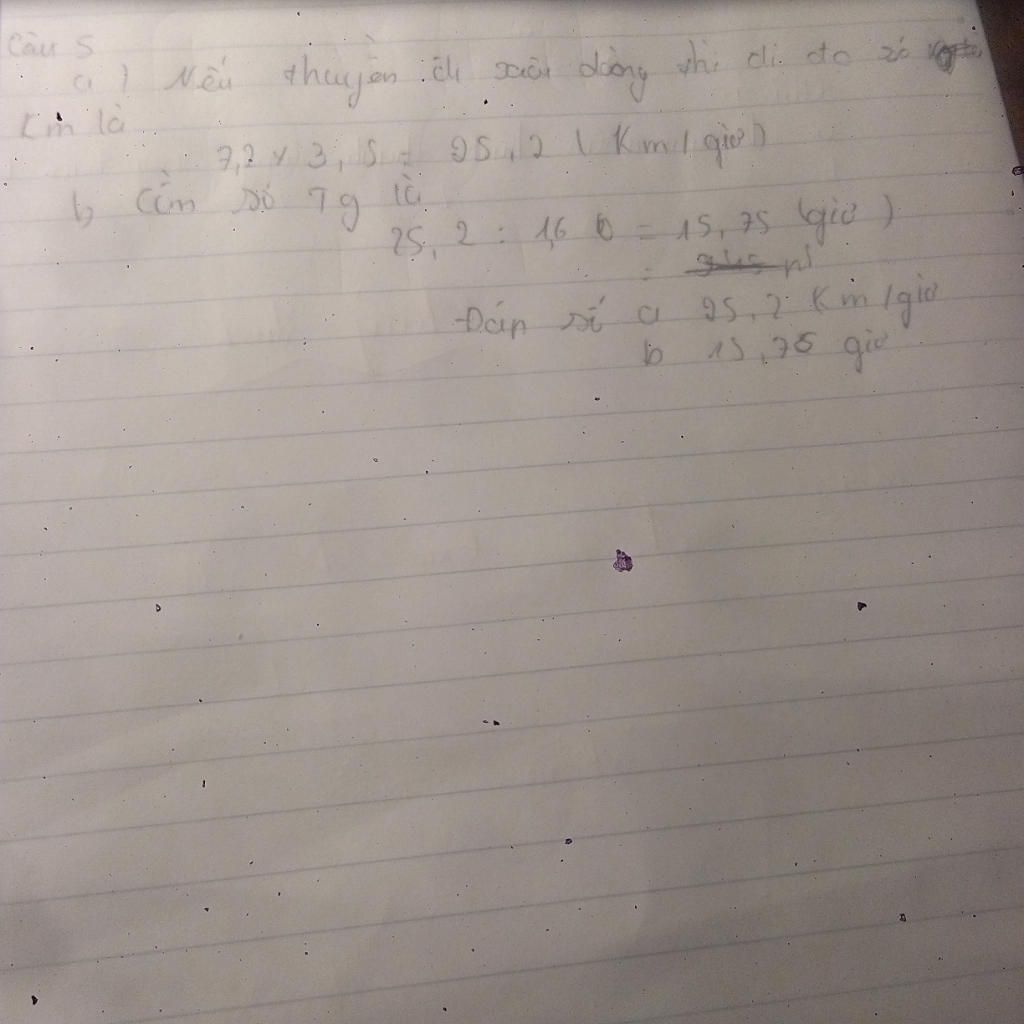 Câu 5
a) Nếu thuyền đi xuôi dòng thì đi đc số
Km là
7,2 x 3,5 = 25,2 (Km/giờ)
b, Cần số Tg là
25,2 : 1,6 = 15,75 (giờ)
=
Đáp số a 25,2 Km/giờ
b 15,75 giờ